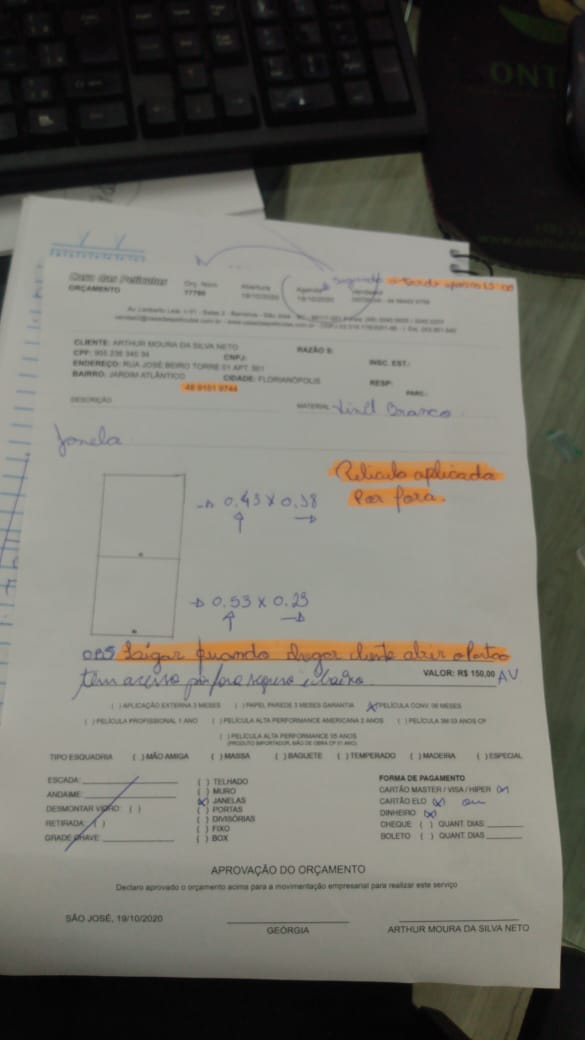 ONT
Casa das Películas
ORÇAMENTO
Orç. Num
17786
Abertura
19/10/2020
Agenda
19/10/2020
Vendedor
segunda
CLIENTE: ARTHUR MOURA DA SILVA NETO
RAZÃO S:
CNPJ:
INSC. EST.:
ENDEREÇO: RUA JOSÉ BEIRO TORRE 01 APT. 501
BAIRRO: JARDIM ATLÂNTICO
CIDADE: FLORIANÓPOLIS
RESP:
PARC.:
48 9101 9744
DESCRIÇÃO
MATERIAL: Vinil Branco
Janela
Pelicula aplicada
Por fora.
→ 0.43 x 0.38
→ 0.53 x 0.23
OBS Ligar quando chegar cliente abrir o Portão
tem acesso por fora seguro e baixo.
VALOR: R$ 150,00 AV
( ) APLICAÇÃO EXTERNA 3 MESES ( ) PAPEL PAREDE 3 MESES GARANTIA (X) PELÍCULA CONV. 06 MESES
( ) PELÍCULA PROFISSIONAL 1 ANO ( ) PELÍCULA ALTA PERFORMANCE AMERICANA 2 ANOS ( ) PELÍCULA 3M 03 ANOS CP
( ) PELÍCULA ALTA PERFORMANCE 05 ANOS
(PRODUTO IMPORTADOR, MÃO DE OBRA CP 01 ANO)
TIPO ESQUADRIA ( ) MÃO AMIGA ( ) MASSA ( ) BAGUETE ( ) TEMPERADO ( ) MADEIRA ( ) ESPECIAL
ESCADA:
ANDAIME:
DESMONTAR VIDRO: ( )
RETIRADA: ( )
GRADE CHAVE:
( ) TELHADO
( ) MURO
(X) JANELAS
( ) PORTAS
( ) DIVISÓRIAS
( ) FIXO
( ) BOX
FORMA DE PAGAMENTO
CARTÃO MASTER / VISA / HIPER (X)
CARTÃO ELO (X) ou
DINHEIRO (X)
CHEQUE ( ) QUANT. DIAS:
BOLETO ( ) QUANT. DIAS:
APROVAÇÃO DO ORÇAMENTO
Declaro aprovado o orçamento acima para a movimentação empresarial para realizar este serviço
SÃO JOSÉ, 19/10/2020
GEÓRGIA
ARTHUR MOURA DA SILVA NETO